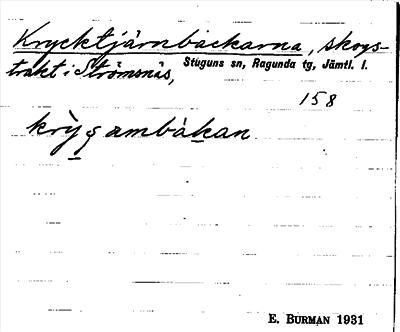 Krycktjärnbäckarna, skogs-
trakt i Strömsnäs, Stuguns sn, Ragunda tg, Jämtl. l.
158
krỳ ambàkan
E. BURMAN 1931